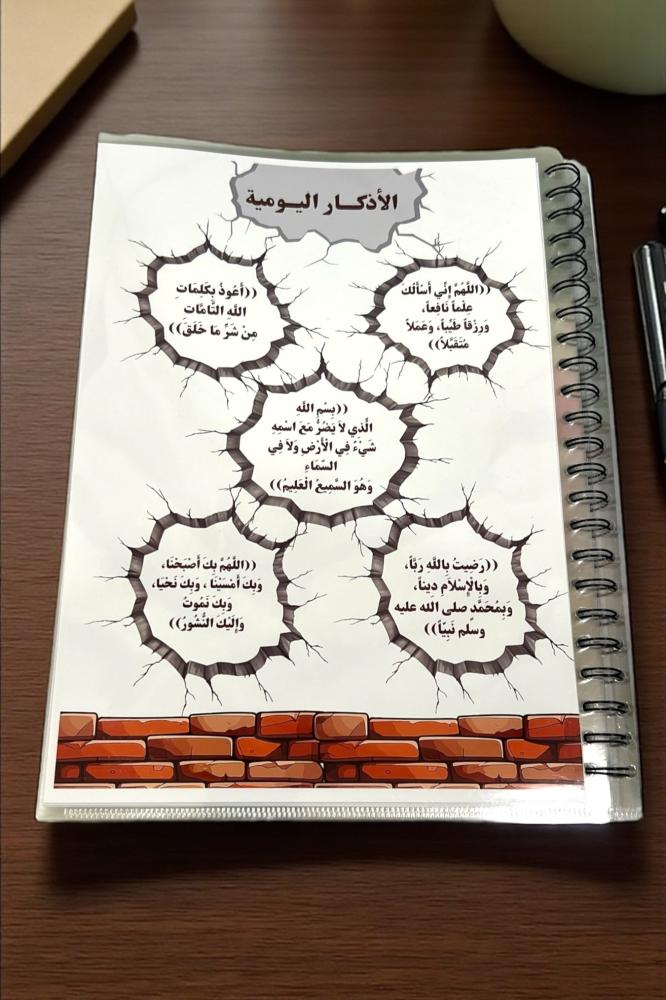 الأذكــار اليـومية
((اللَّهُمَّ إِنِّي أَسْأَلُكَ
عِلْماً نَافِعاً،
وَرِزْقاً طَيِّباً، وَعَمَلاً
مُتَقَبَّلاً))
((أَعُوذُ بِكَلِمَاتِ
اللَّهِ التَّامَّات
مِنْ شَرِّ مَا خَلَقَ))
((بِسْمِ اللَّهِ
الَّذِي لاَ يَضُرُّ مَعَ اسْمِهِ
شَيْءٌ فِي الْأَرْضِ وَلاَ فِي
السَّمَاءِ
وَهُوَ السَّمِيعُ الْعَلِيمُ))
((رَضِيتُ بِاللَّهِ رَبَّاً،
وَبِالْإِسْلاَمِ دِيناً،
وَبِمُحَمَّدٍ صلى الله عليه
وسلم نَبِيّاً))
((اللَّهُمَّ بِكَ أَصْبَحْنَا،
وَبِكَ أَمْسَيْنَا ، وَبِكَ نَحْيَا،
وَبِكَ نَمُوتُ
وَإِلَيْكَ النُّشُورُ))